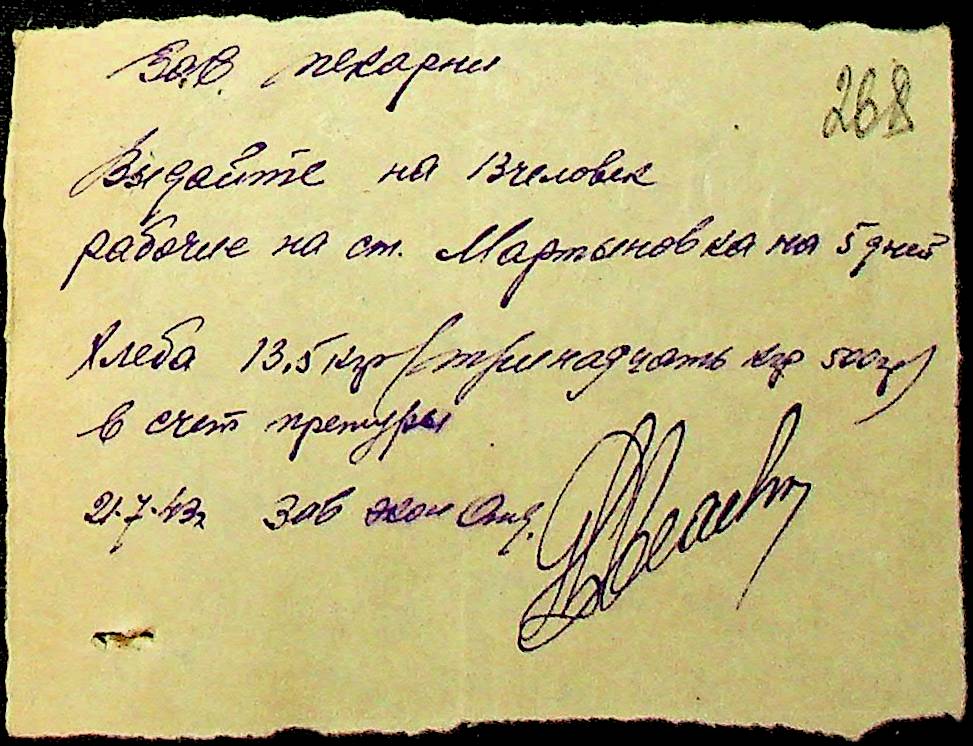 Зав. пекарни
268
Выдайте на 13 человек
рабочие на ст. Мартыновка на 5 дней
Хлеба 13,5 кгр (тринадцать кгр 500 гр)
в счет претуры
21.7.43 г. Зав экон Отд.